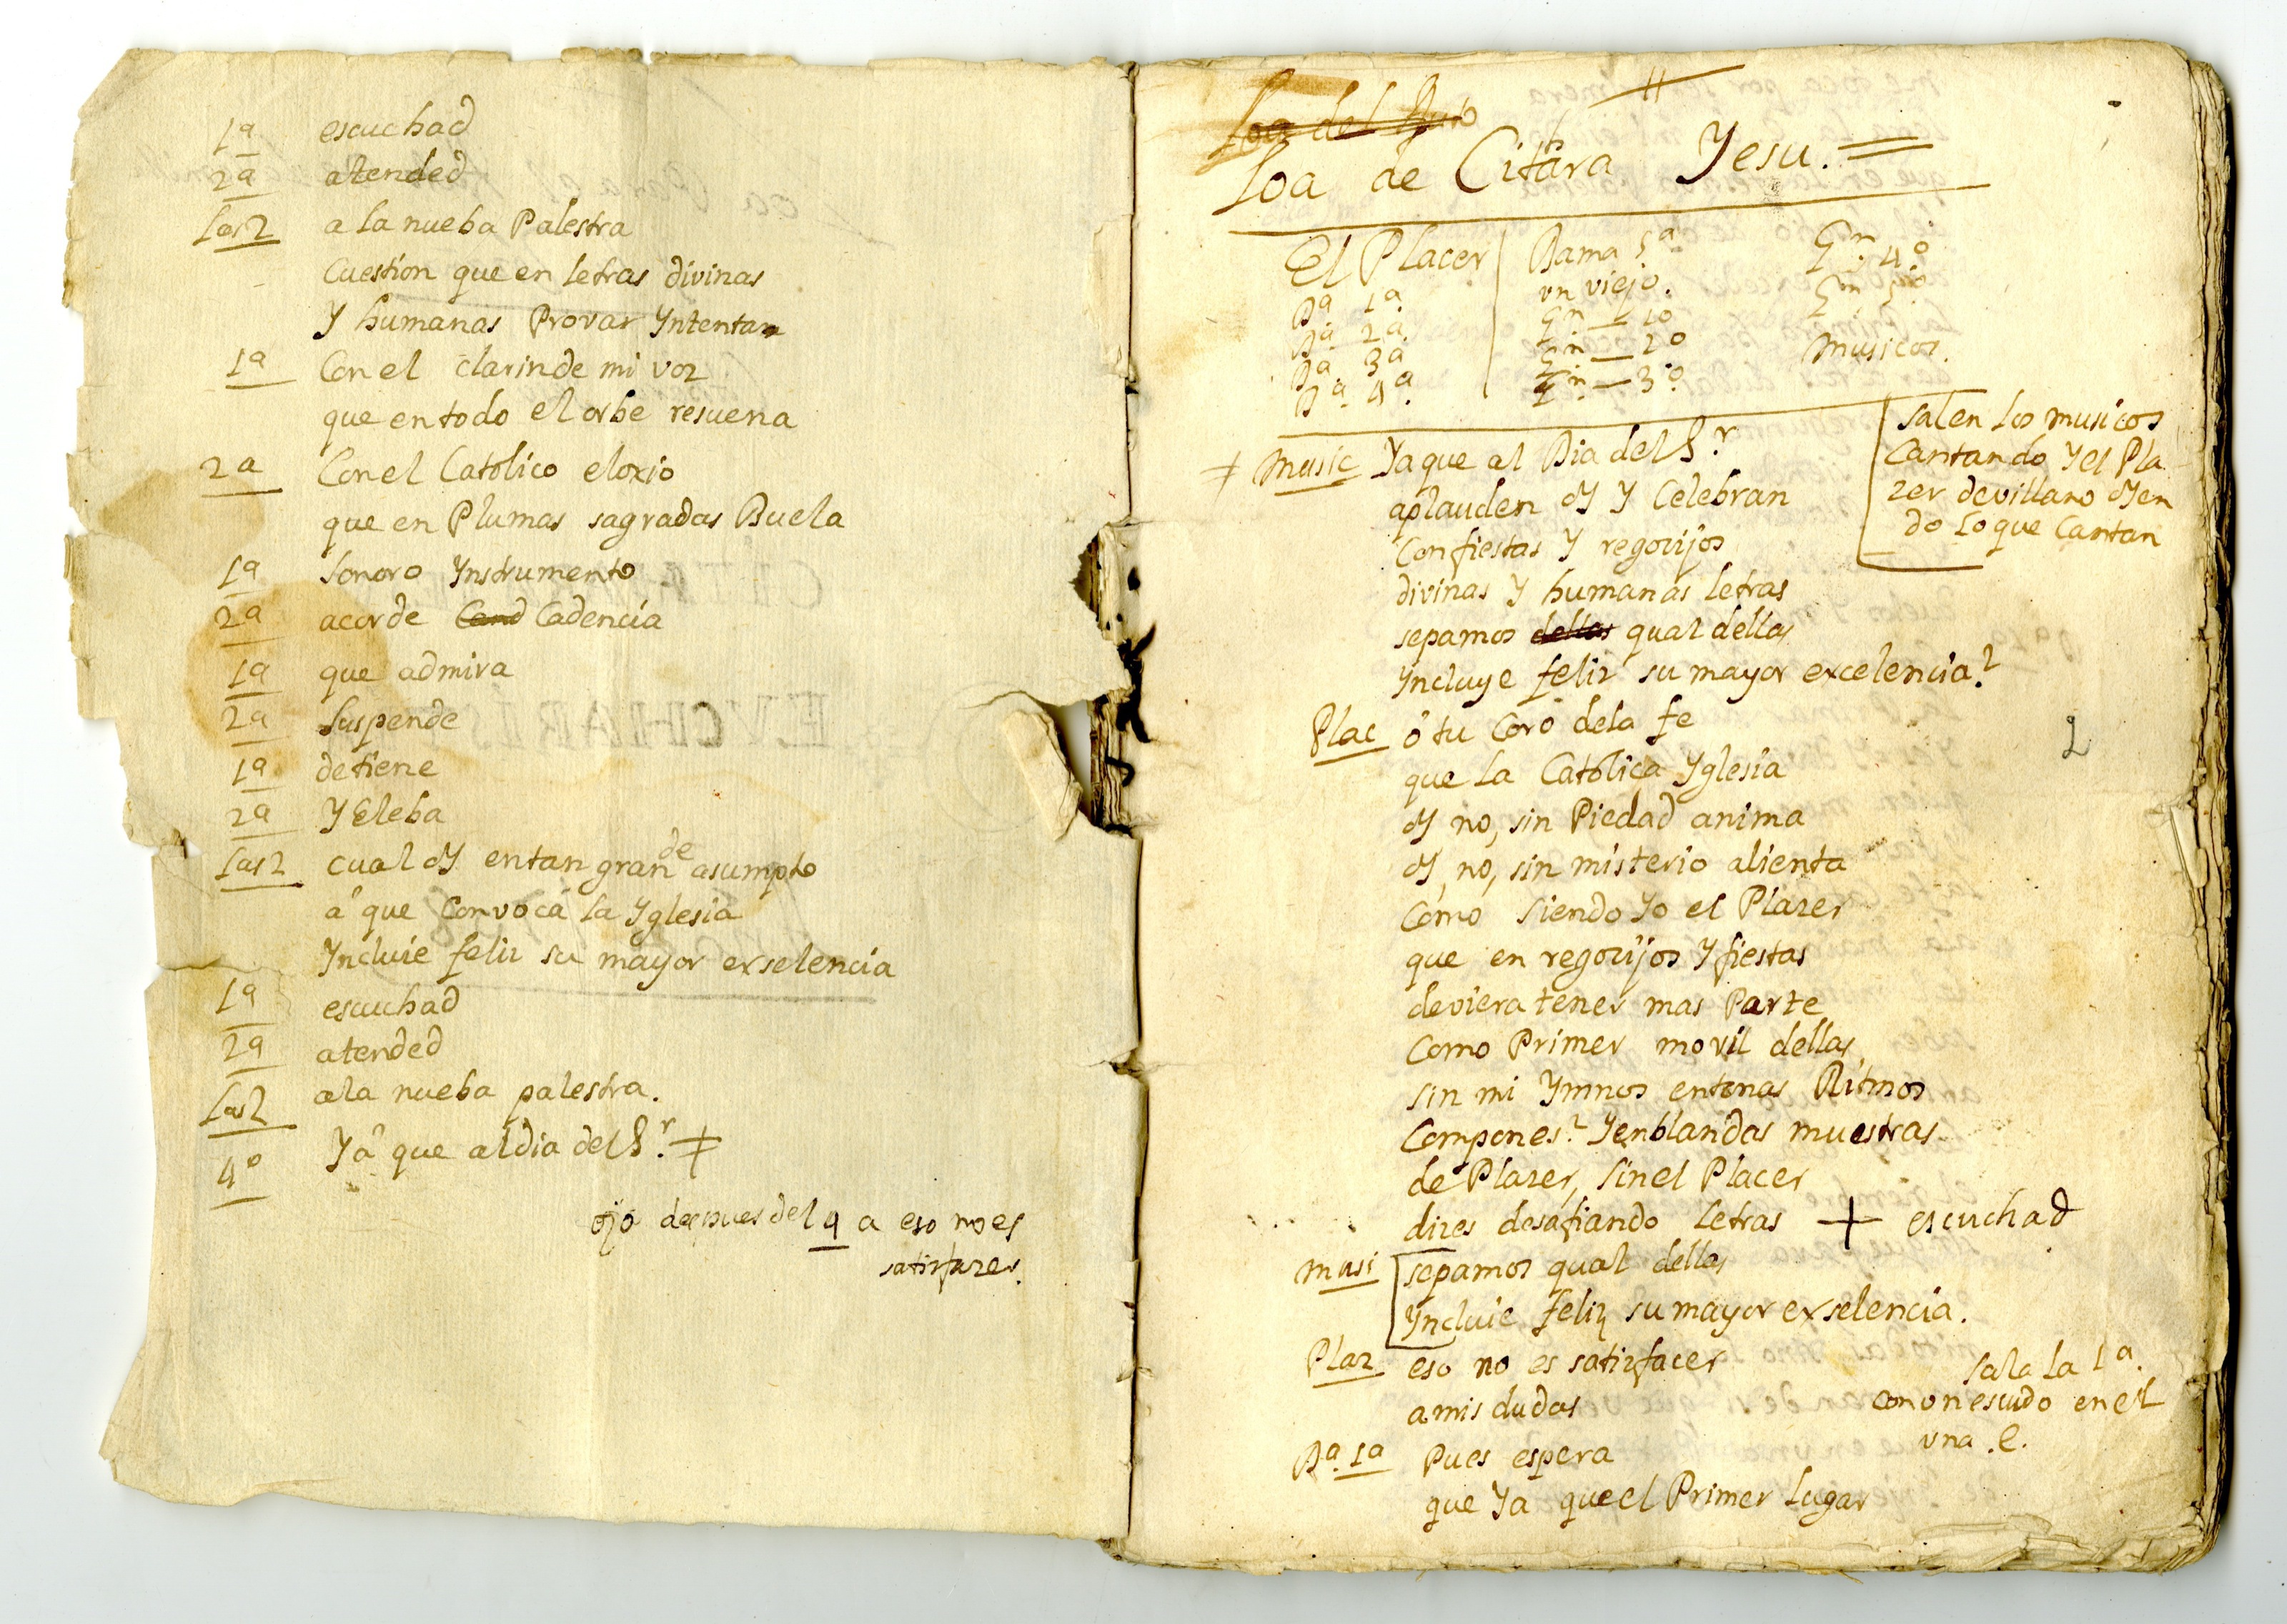 1ª escuchad
2ª atended
las 2 a la nueba Palestra
Cuestion que en letras divinas
Y humanas Provar Yntentan
1ª Con el clarin de mi voz
que en todo el orbe resuena
2ª Con el Catolico eloxio
que en Plumas sagradas Buela
1ª Sonoro Ynstrumento
2ª acorde Cand Cadencia
1ª que admira
2ª Suspende
1ª detiene
2ª Y Eleba
las 2 cual oY en tan grande asumpto
a que Convoca la Yglesia
Yncluie feliz su mayor exselencia
1ª escuchad
2ª atended
las 2 a la nueba palestra.
4º Ya que al dia del Sr. +
ojo despues del 4 a eso no es
satisfazer.
Loa del
Loa de Citara Yesu. =
El Placer
Dª 1ª
Dª 2ª
Dª 3ª
Dª 4ª
Dama 5ª
vn viejo.
Gn — 1º
Gn — 2º
Gn — 3º
Gn 4º
Gn 5º
Musicos.
Salen los musicos
Cantando Y el Pla
zer de villano oYen
do lo que Cantan
+ Music Ya que al Dia del Sr.
aplauden oY Y Celebran
Con fiestas Y regozijos
divinas Y humanas letras
sepamos dellas qual dellas
Yncluye feliz su mayor excelencia?
Plac o tu Coro de la fe
que la Catolica Yglesia
oY no, sin Piedad anima
oY, no, sin misterio alienta
Como Siendo Yo el Plazer
que en regozijos Y fiestas
deviera tener mas Parte
Como Primer movil dellas
sin mi Ymnos entonas Ritmos
Compones? Y en blandas muestras
de Plazer, Sin el Placer
dizes desafiando letras + escuchad
2
Musi sepamos qual dellas
Yncluie feliz su mayor exselencia.
Plaz eso no es satizfacer
a mis dudas
Sala la 1ª.
con vn escudo en el
vna .e.
Dª. 1ª Pues espera
que Ya que el Primer lugar